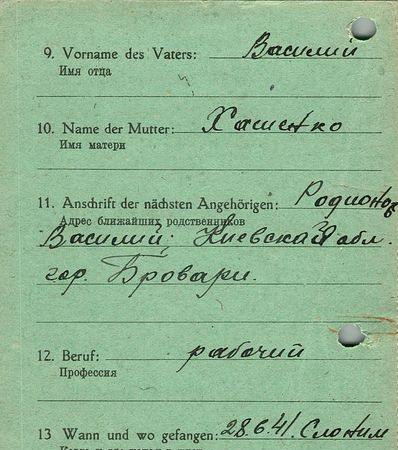 9. Vorname des Vaters: Василий
Имя отца
10. Name der Mutter: Хашенко
Имя матери
11. Anschrift der nächsten Angehörigen: Родионов
Адрес ближайших родственников
Василий. Киевская обл.
гор. Бровари.
12. Beruf: рабочий
Профессия
13 Wann und wo gefangen: 28.6.41. Слоним